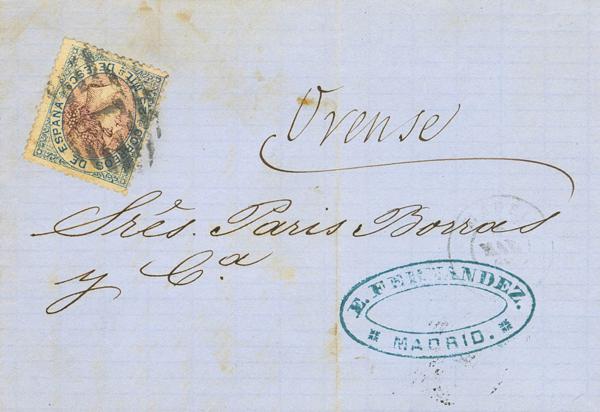 CORREOS DE ESPAÑA
MIL. DE ESCO
Orense
Srēs. Paris Borras
y Cª
E. FERNANDEZ.
MADRID.
MAR